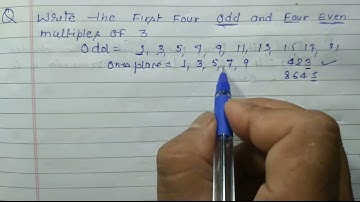 Q Write the First Four Odd and Four Even
multiples of 3
Odd = 1, 3, 5, 7, 9, 11, 13, 15 17,
Ones place = 1, 3, 5, 7, 9 423 ✓
8645